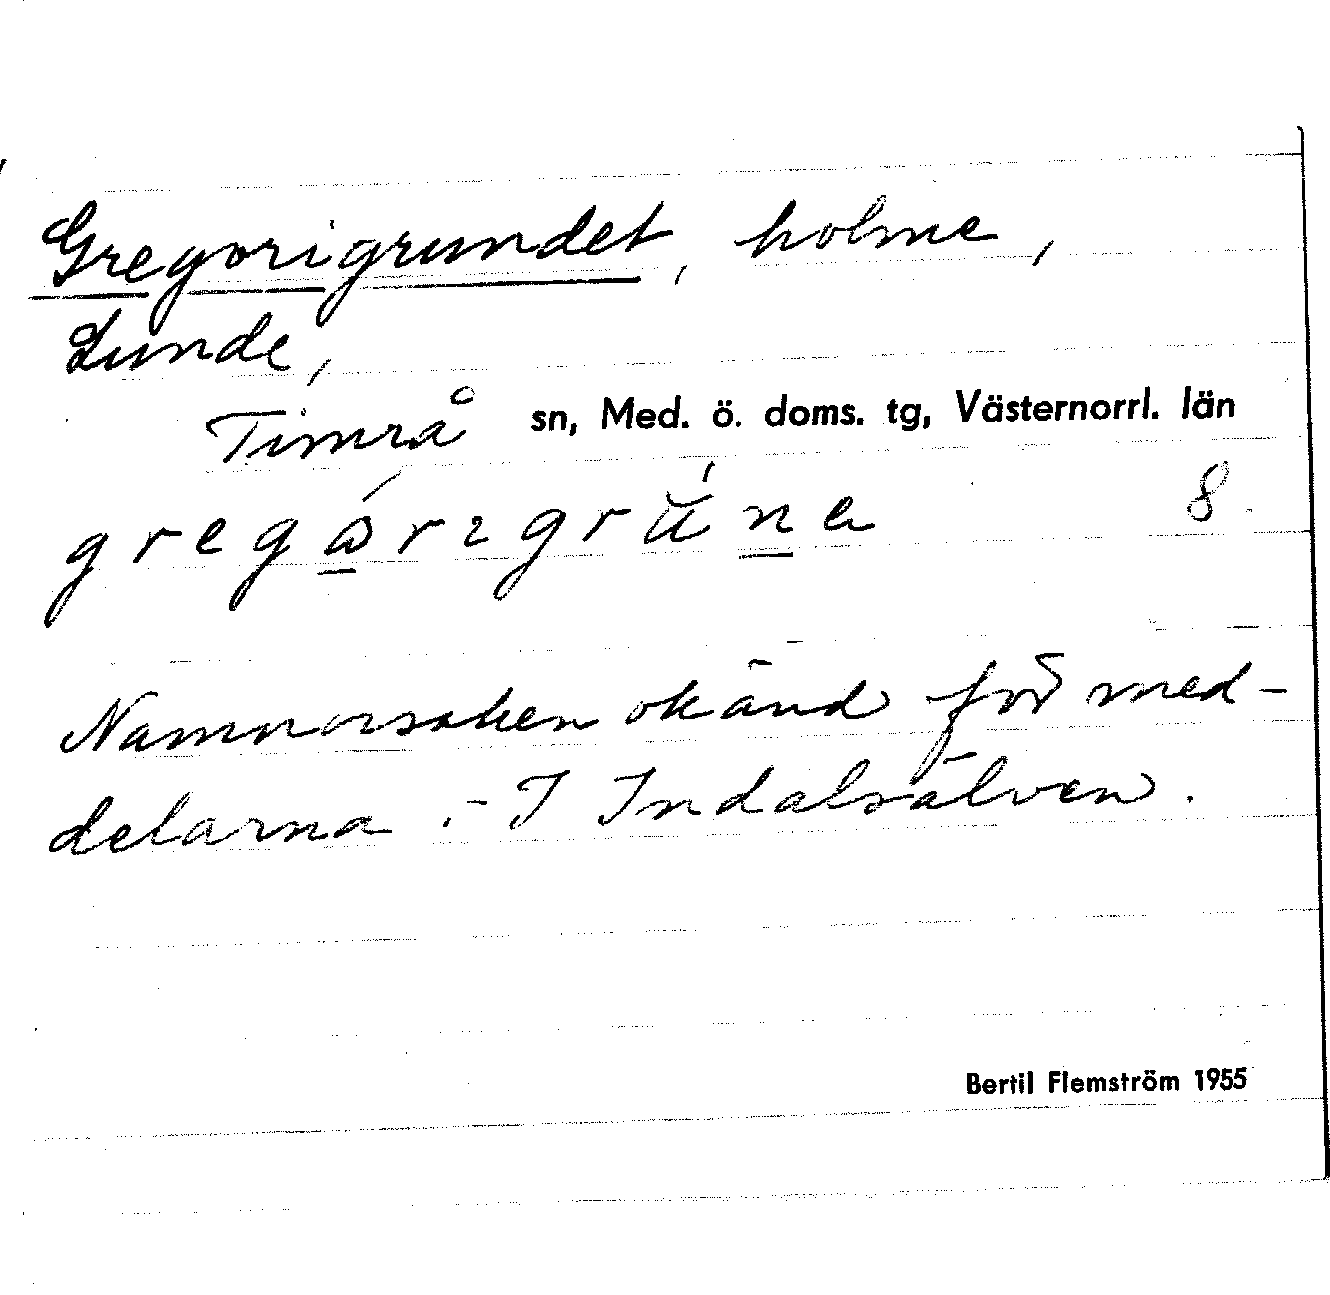 Gregorigrundet, holme,
Lunde,
Timrå sn, Med. ö. doms. tg, Västernorrl. län
8
Namnorsaken okänd för med-
delarna. – I Indalsälven.
Bertil Flemström 1955